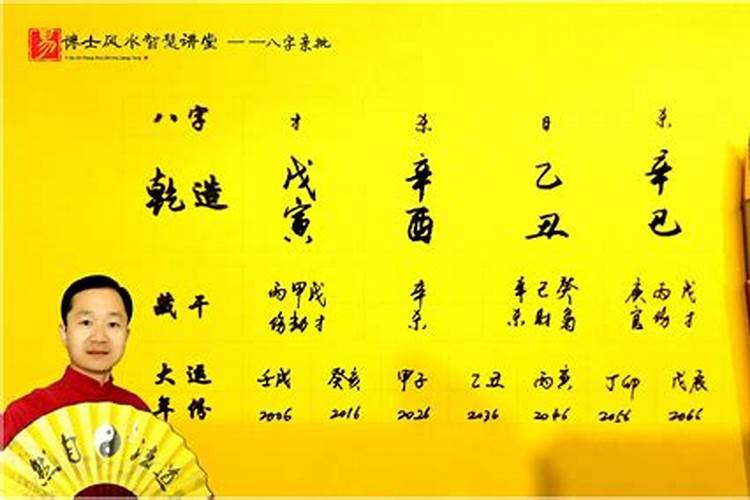 易 博士风水智慧讲堂 ——八字亲批
八字 才 杀 日 杀
乾造 戊 辛 乙 辛
寅 酉 丑 巳
藏干 丙甲戊 辛 辛己癸 庚丙戊
伤劫才 杀 杀财枭 官伤才
大运 壬戌 癸亥 甲子 乙丑 丙寅 丁卯 戊辰
年份 2006 2016 2026 2036 2046 2056 2066
然自法道